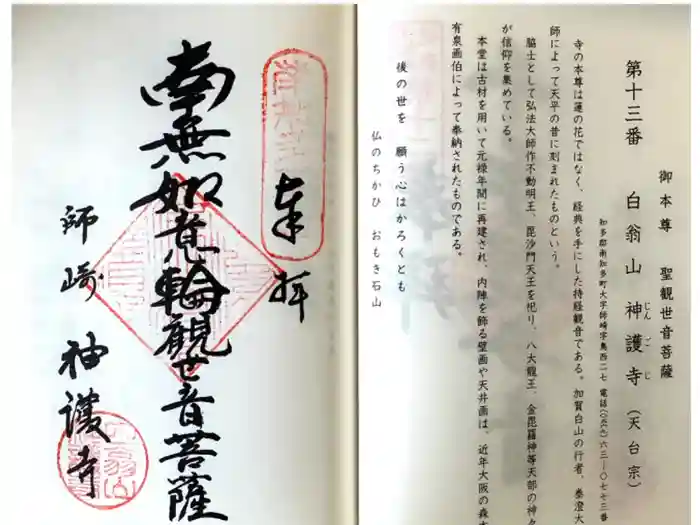 御本尊 聖観世音菩薩
第十三番 白翁山 神護寺（天台宗）
じん ご じ
知多郡南知多町大字師崎字奥西二七 電話(〇五六九)六三―〇七七三番
寺の本尊は蓮の花ではなく、経典を手にした持経観音である。加賀白山の行者、泰澄大
師によって天平の昔に刻まれたものという。
脇士として弘法大師作不動明王、毘沙門天王を祀り、八大龍王、金毘羅神等天部の神々
が信仰を集めている。
本堂は古材を用いて元禄年間に再建され、内陣を飾る壁画や天井画は、近年大阪の森本
有泉画伯によって奉納されたものである。
後の世を 願う心はかろくとも
仏のちかひ おもき石山
奉拝
南無如意輪観世音菩薩
師崎 神護寺